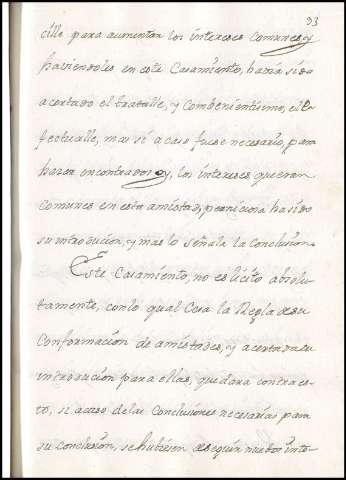 93
cillo para aumentar los intereses comunes, y
haviendolos en este Casamiento, habrá sido
acertado el tratalle, y combenientisimo, el e-
fectualle, mas si acaso fuese necesario, para
hazer encontrados oy, los intereses que eran
comunes en esta amistad, perniciosa ha sido
su introducion, y mas lo señala la conclusion.
Este Casamiento, no es licito absolu-
tamente, con lo qual Cesa la Regla de su
Conformacion de amistades, y acertada su
introducion para ellas, quedara contraes-
to, si acaso de las Conclusiones necesarias para
su conclusion, se hubiesen de seguir nuebos inte-